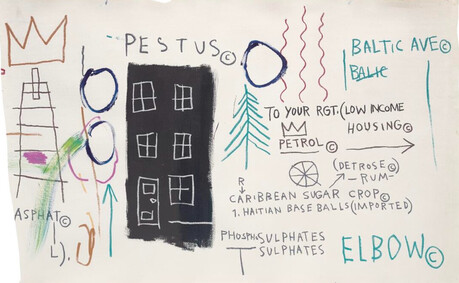 PESTUS©
BALTIC AVE©
BALIC
TO YOUR RGT. (LOW INCOME
HOUSING©
PETROL©
(DETROSE©)
—RUM—
R
CARIBBEAN SUGAR CROP©
1. HAITIAN BASE BALLS (IMPORTED)
ASPHAT©
L).
PHOSPHSULPHATES
SULPHATES
ELBOW©